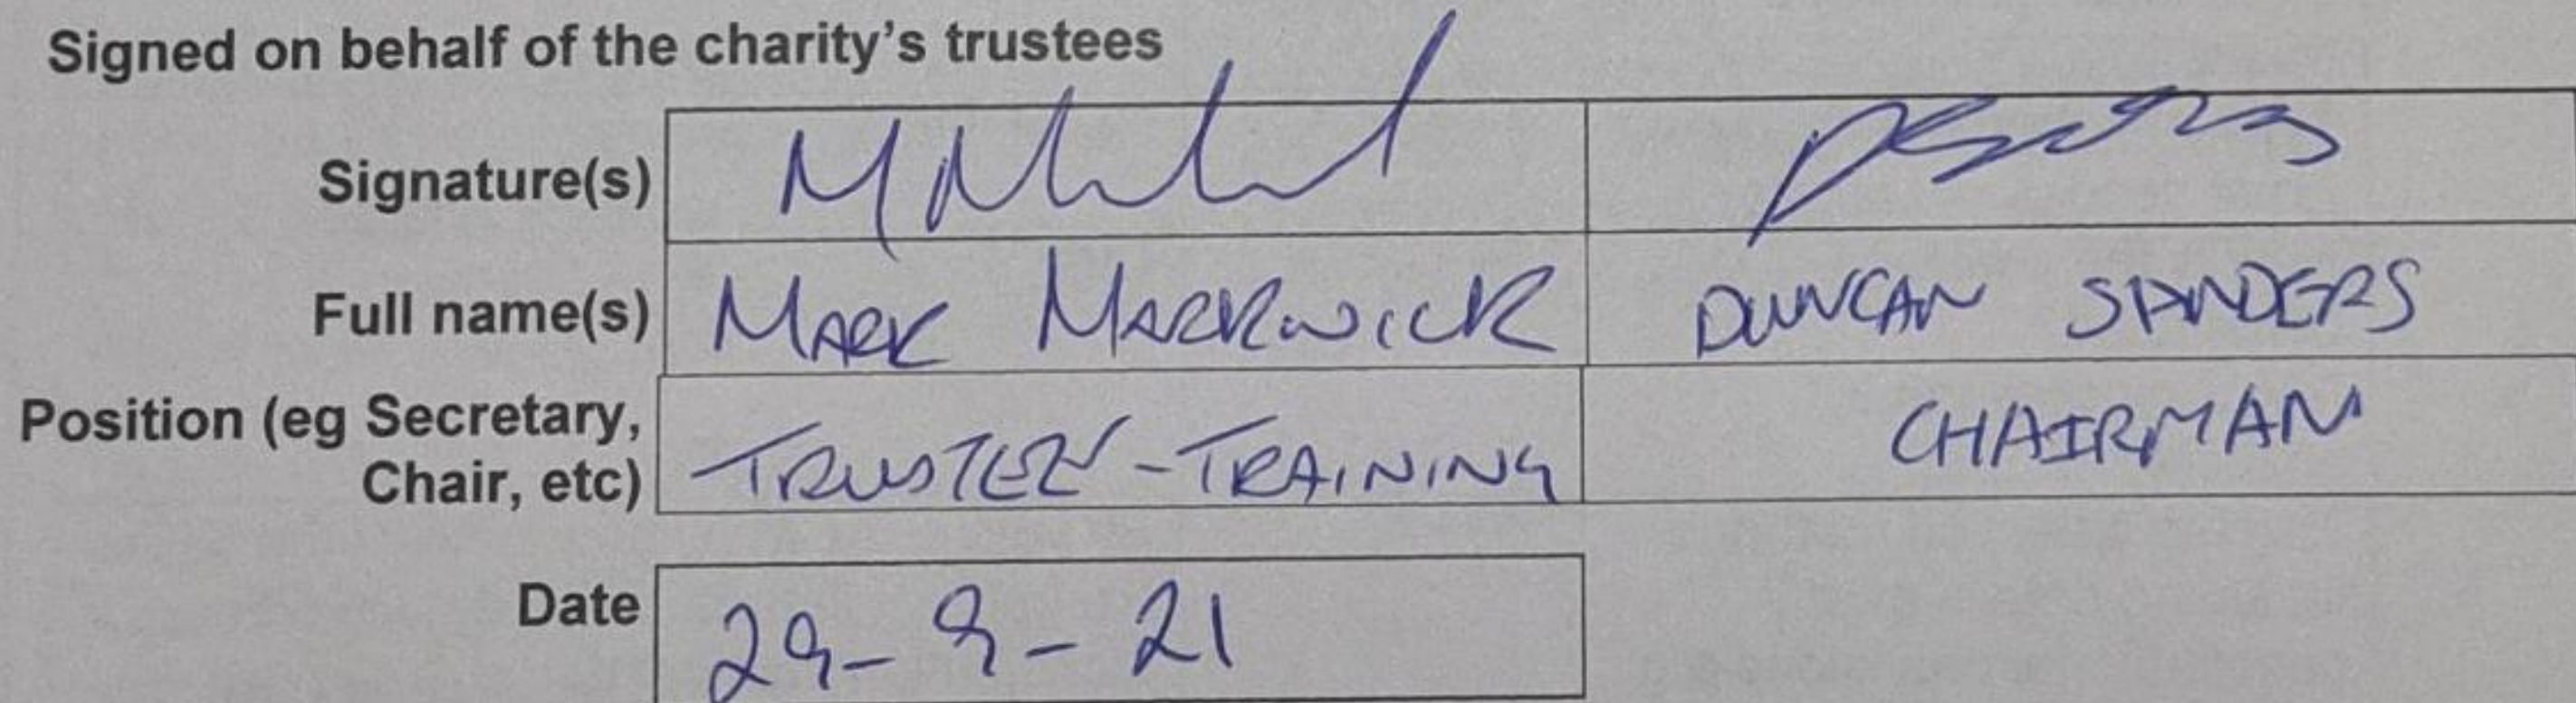 Signed on behalf of the charity's trustees
Signature(s)
Full name(s) MARK MARKWICK DUNCAN SANDERS
Position (eg Secretary,
Chair, etc) TRUSTEE - TRAINING CHAIRMAN
Date 29-9-21